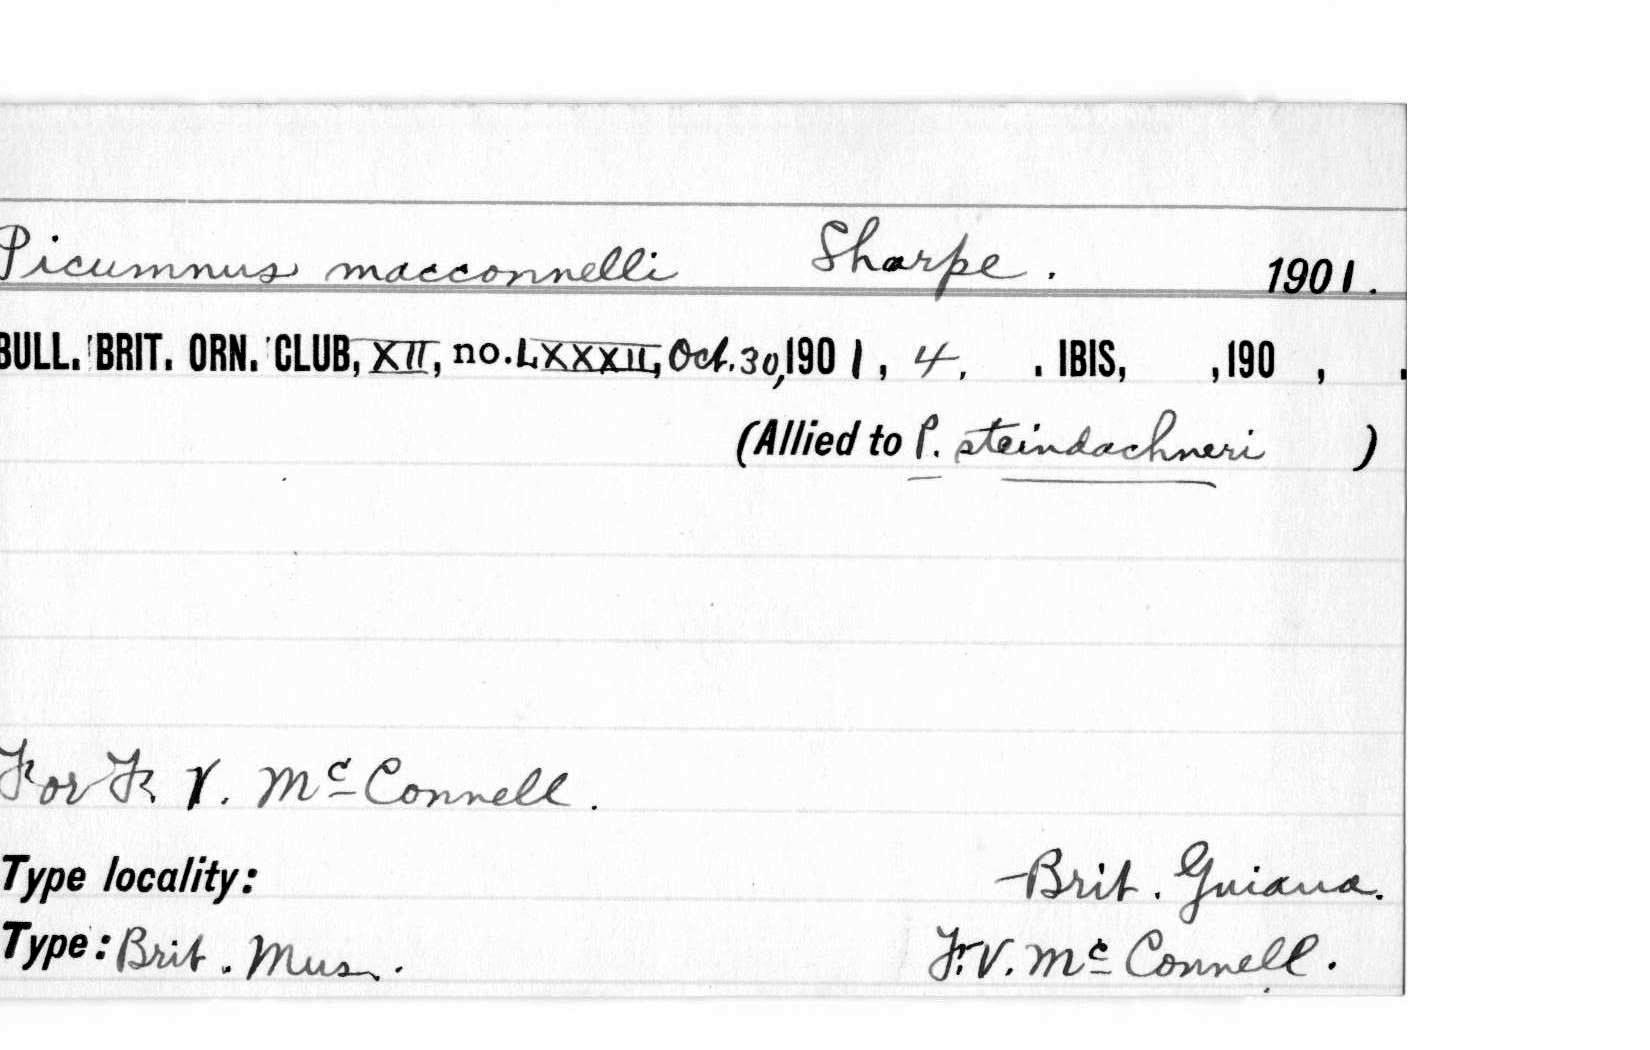 Picumnus macconnelli Sharpe. 1901.
BULL. BRIT. ORN. CLUB, XII, no. LXXXII, Oct. 30, 1901, 4. . IBIS, ,190 , .
(Allied to P. steindachneri )
For F. V. McConnell.
Type locality: Brit. Guiana.
Type: Brit. Mus. F. V. McConnell.